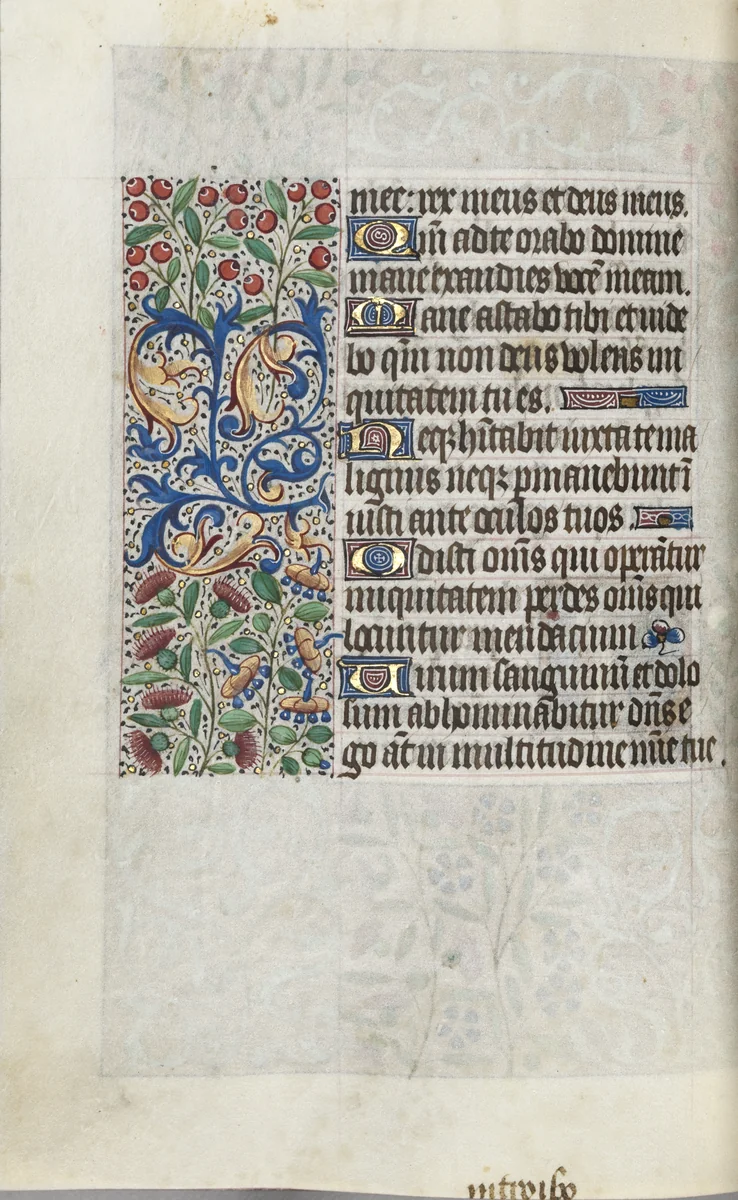 mee: rex meus et deus meus.
Qm̄ ad te orabo domine
mane exaudies vocē meam.
Mane astabo tibi et vide
bo qm̄ non deus volens ini
quitatem tu es.
Neqꝫ hītabit iuxta te ma
lignus neqꝫ ꝑmanebunt ī
iusti ante oculos tuos.
Odisti om̄s qui operāt̄ur
iniquitatem perdes om̄s qui
locuntur mendacium
Uirum sanguinū et dolo
sum abhominabitur dn̄s e
go āt in multitudine mīe tue.
introibo